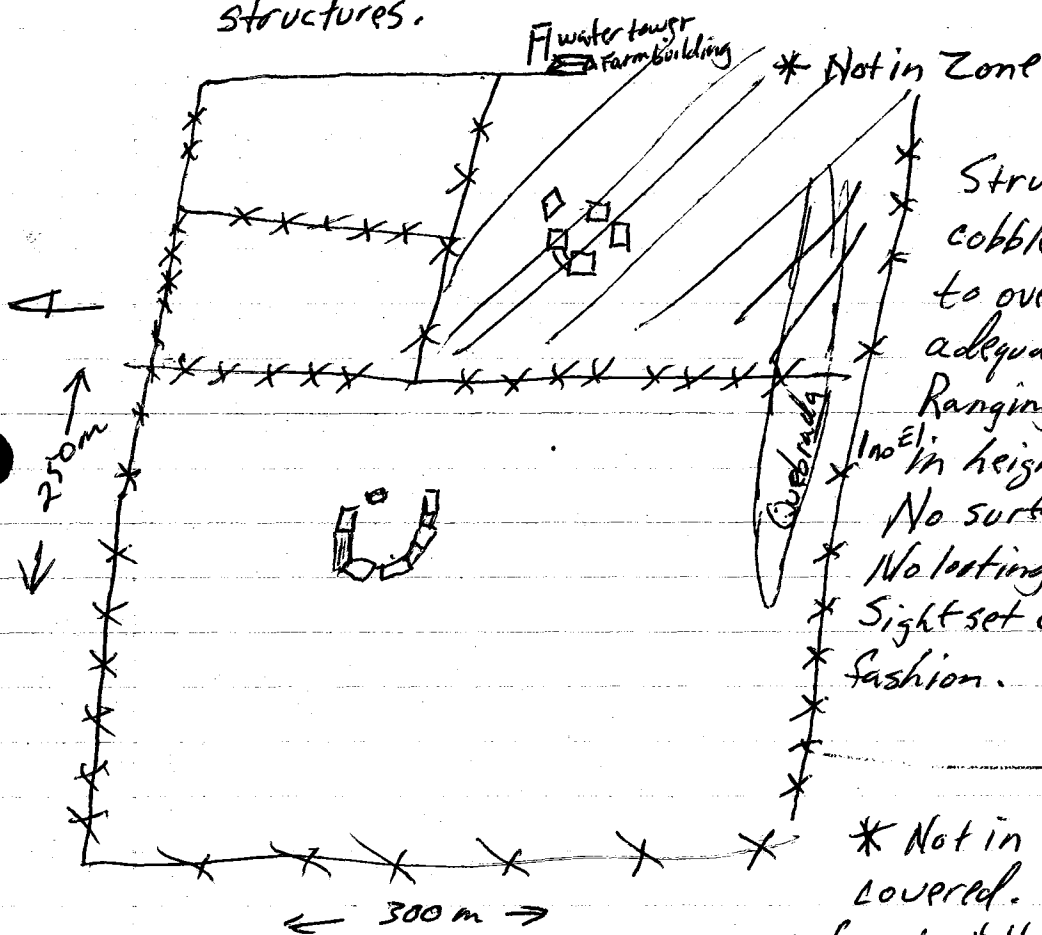 structures.
water tower
Farm building
* Not in Zone
Stru
cobble
to ove
adequa
Ranging
in heig
No surf
No looting
Sight set
fashion.
250m
Quebrada
* Not in
covered.
300 m